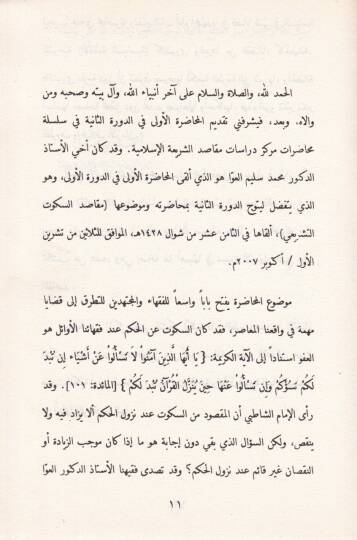 الحمد لله، والصلاة والسلام على آخر أنبياء الله، وآل بيته وصحبه ومن
والاه. وبعد، فيشرفني تقديم المحاضرة الأولى في الدورة الثانية في سلسلة
محاضرات مركز دراسات مقاصد الشريعة الإسلامية. وقد كان أخي الأستاذ
الدكتور محمد سليم العوّا هو الذي ألقى المحاضرة الأولى في الدورة الأولى، وهو
الذي يتفضل ليتوج الدورة الثانية بمحاضرته وموضوعها (مقاصد السكوت
التشريعي)، ألقاها في الثامن عشر من شوال ١٤٢٨هـ، الموافق للثلاثين من تشرين
الأول / أكتوبر ٢٠٠٧م.
موضوع المحاضرة يفتح باباً واسعاً للفقهاء والمجتهدين للتطرق إلى قضايا
مهمة في واقعنا المعاصر، فقد كان السكوت عن الحكم عند فقهائنا الأوائل هو
العفو استناداً إلى الآية الكريمة: {يَا أَيُّهَا الَّذِينَ آمَنُوا لَا تَسْأَلُوا عَنْ أَشْيَاءَ إِن تُبْدَ
لَكُمْ تَسُؤْكُمْ وَإِن تَسْأَلُوا عَنْهَا حِينَ يُنَزَّلُ الْقُرْآنُ تُبْدَ لَكُمْ} [المائدة: ١٠١]. وقد
رأى الإمام الشاطبي أن المقصود من السكوت عند نزول الحكم ألا يزاد فيه ولا
ينقص، ولكن السؤال الذي بقي دون إجابة هو ما إذا كان موجب الزيادة أو
النقصان غير قائم عند نزول الحكم؟ وقد تصدى فقيهنا الأستاذ الدكتور العوّا
١١